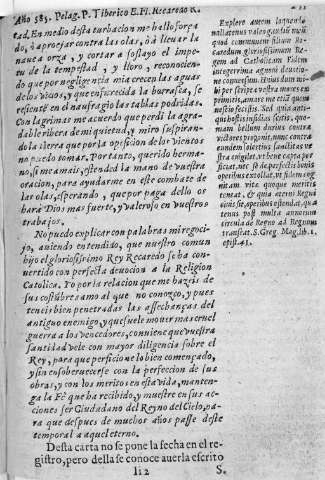 Año 585. Pelag. P. Tiberico E. Fl. Recaredo R.
tad, En medio desta turbacion me hallo força
do, ò aproejar contra las olas, ò à lleuar la
naue à orza, y cortar à soslayo el impe-
tu de la tempestad, y lloro, reconocien-
do que por negligentia mia crecen las aguas
de los vicios, y que enfurecida la borrasca, se
resiente en el naufragio las tablas podridas.
Con lagrimas me acuerdo que perdi la agra-
dable ribera de mi quietud, y miro suspiran-
do la tierra que por la oposicion de los vientos
no puedo tomar. Por tanto, querido herma-
no, si me amais, estended la mano de vuestra
oracion, para ayudarme en este combate de
las olas, esperando, que por paga dello os
harà Dios mas fuerte, y valeroso en vuestros
trabajos.
No puedo explicar con palabras mi regoci-
jo, auiendo entendido, que nuestro comun
hijo el gloriosissimo Rey Recaredo se ha con-
uertido con perfecta deuocion a la Religion
Catolica. Yo por la relacion que me hazeis de
sus costũbres amo al que no conozco, y pues
teneis bien penetradas las assechanças del
antiguo enemigo, y que suele mouer mas cruel
guerra a los vencedores, conuiene que vuestra
santidad vele con mayor diligencia sobre el
Rey, para que perficione lo bien começado,
y sin ensoberuecerse con la perfeccion de sus
obras, y con los meritos en esta vida, manten-
ga la Fè que ha recibido, y muestre en sus ac-
ciones ser Ciudadano del Reyno del Cielo, pa-
ra que despues de muchos años passe deste
temporal a aquel eterno.
Desta carta no se pone la fecha en el re-
gistro, pero della se conoce auerla escrito
Ii 2 S.
Explere autem loquela
nullatenus valeo,
quod communem filium
Recaredum gloriosissimum Re-
gem ad Catholicam Fidem
integerrima agnoui deuotio-
ne conuersum.
mihi per scripta vestra mores ex-
primitis, amare me etiam quem
nescio fecistis. Sed quia anti-
qui hostis insidias scitis, quo-
niam bellum durius contra
victores proponit, nunc contra
eundem solertius sanctitas ve-
stra vigilet, vt bene coepta per-
ficiat, nec se de perfectis bonis
operibus extollat, vt fidem cog-
nitam vitæ quoque meritis
teneat, & quia æterni Regni
ciuis sit, operibus ostendat, qua-
tenus post multa annorum
curricula de Regno ad Regnum
transeat. S. Greg. Mag. lib. 1.
epist. 41.